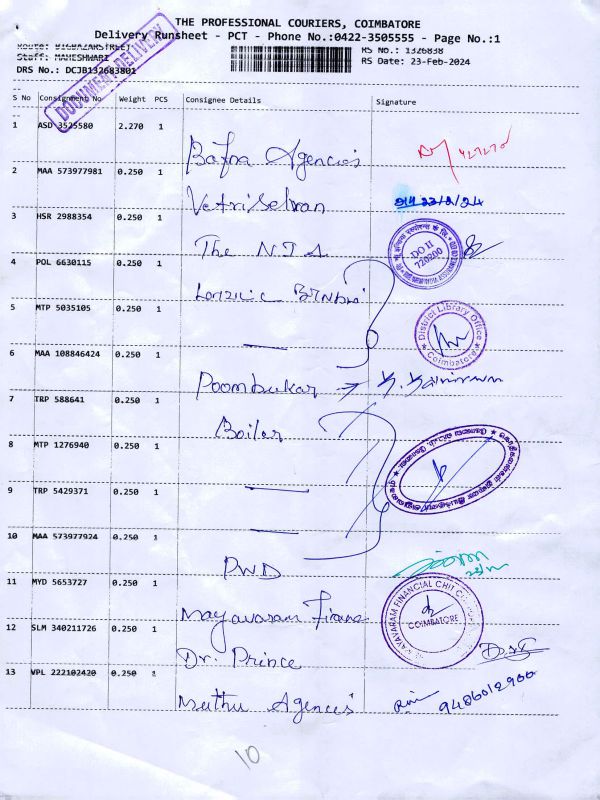 THE PROFESSIONAL COURIERS, COIMBATORE
Delivery Runsheet - PCT - Phone No.:0422-3505555 - Page No.:1
Route: BIGBAZARSTREET
Staff: MAHESHWARI
RS No.: 1326838
DRS No.: DCJB132683801
RS Date: 23-Feb-2024
DOCUMENT DELIVERY
S No Consignment No Weight PCS Consignee Details Signature
1 ASD 3525580 2.270 1 Bafna Agencies
2 MAA 573977981 0.250 1 Vetriselvan 22/2/24
3 HSR 2988354 0.250 1 The N I A
DO II
720200
4 POL 6630115 0.250 1
5 MTP 5035105 0.250 1 —
District Library Office
Coimbatore
6 MAA 108846424 0.250 1 Poombukar →
7 TRP 588641 0.250 1 Boiler
8 MTP 1276940 0.250 1 —
9 TRP 5429371 0.250 1 —
10 MAA 573977924 0.250 1 PWD
11 MYD 5653727 0.250 1 Mayavaram Finance
MAYAVARAM FINANCIAL CHIT
COIMBATORE
12 SLM 340211726 0.250 1 Dr. Prince
13 VPL 222102420 0.250 1 Muthu Agencies 9486012900
10